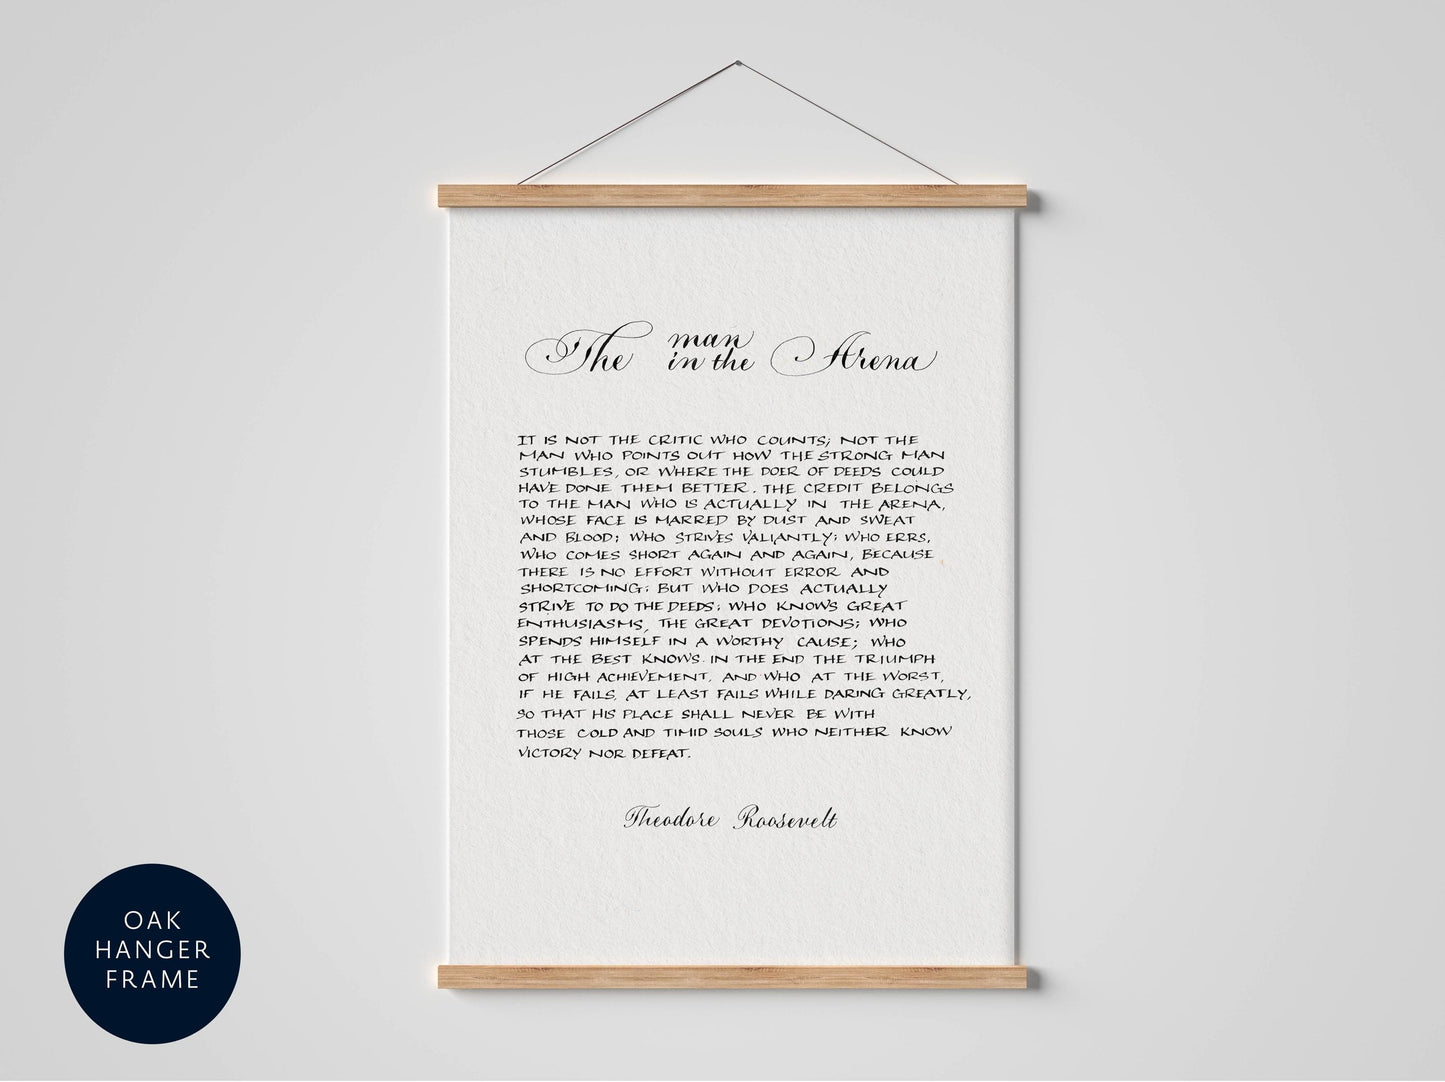 The man in the Arena
IT IS NOT THE CRITIC WHO COUNTS; NOT THE
MAN WHO POINTS OUT HOW THE STRONG MAN
STUMBLES, OR WHERE THE DOER OF DEEDS COULD
HAVE DONE THEM BETTER. THE CREDIT BELONGS
TO THE MAN WHO IS ACTUALLY IN THE ARENA,
WHOSE FACE IS MARRED BY DUST AND SWEAT
AND BLOOD; WHO STRIVES VALIANTLY; WHO ERRS,
WHO COMES SHORT AGAIN AND AGAIN, BECAUSE
THERE IS NO EFFORT WITHOUT ERROR AND
SHORTCOMING; BUT WHO DOES ACTUALLY
STRIVE TO DO THE DEEDS; WHO KNOWS GREAT
ENTHUSIASMS, THE GREAT DEVOTIONS; WHO
SPENDS HIMSELF IN A WORTHY CAUSE; WHO
AT THE BEST KNOWS IN THE END THE TRIUMPH
OF HIGH ACHIEVEMENT, AND WHO AT THE WORST,
IF HE FAILS, AT LEAST FAILS WHILE DARING GREATLY,
SO THAT HIS PLACE SHALL NEVER BE WITH
THOSE COLD AND TIMID SOULS WHO NEITHER KNOW
VICTORY NOR DEFEAT.
Theodore Roosevelt
OAK
HANGER
FRAME